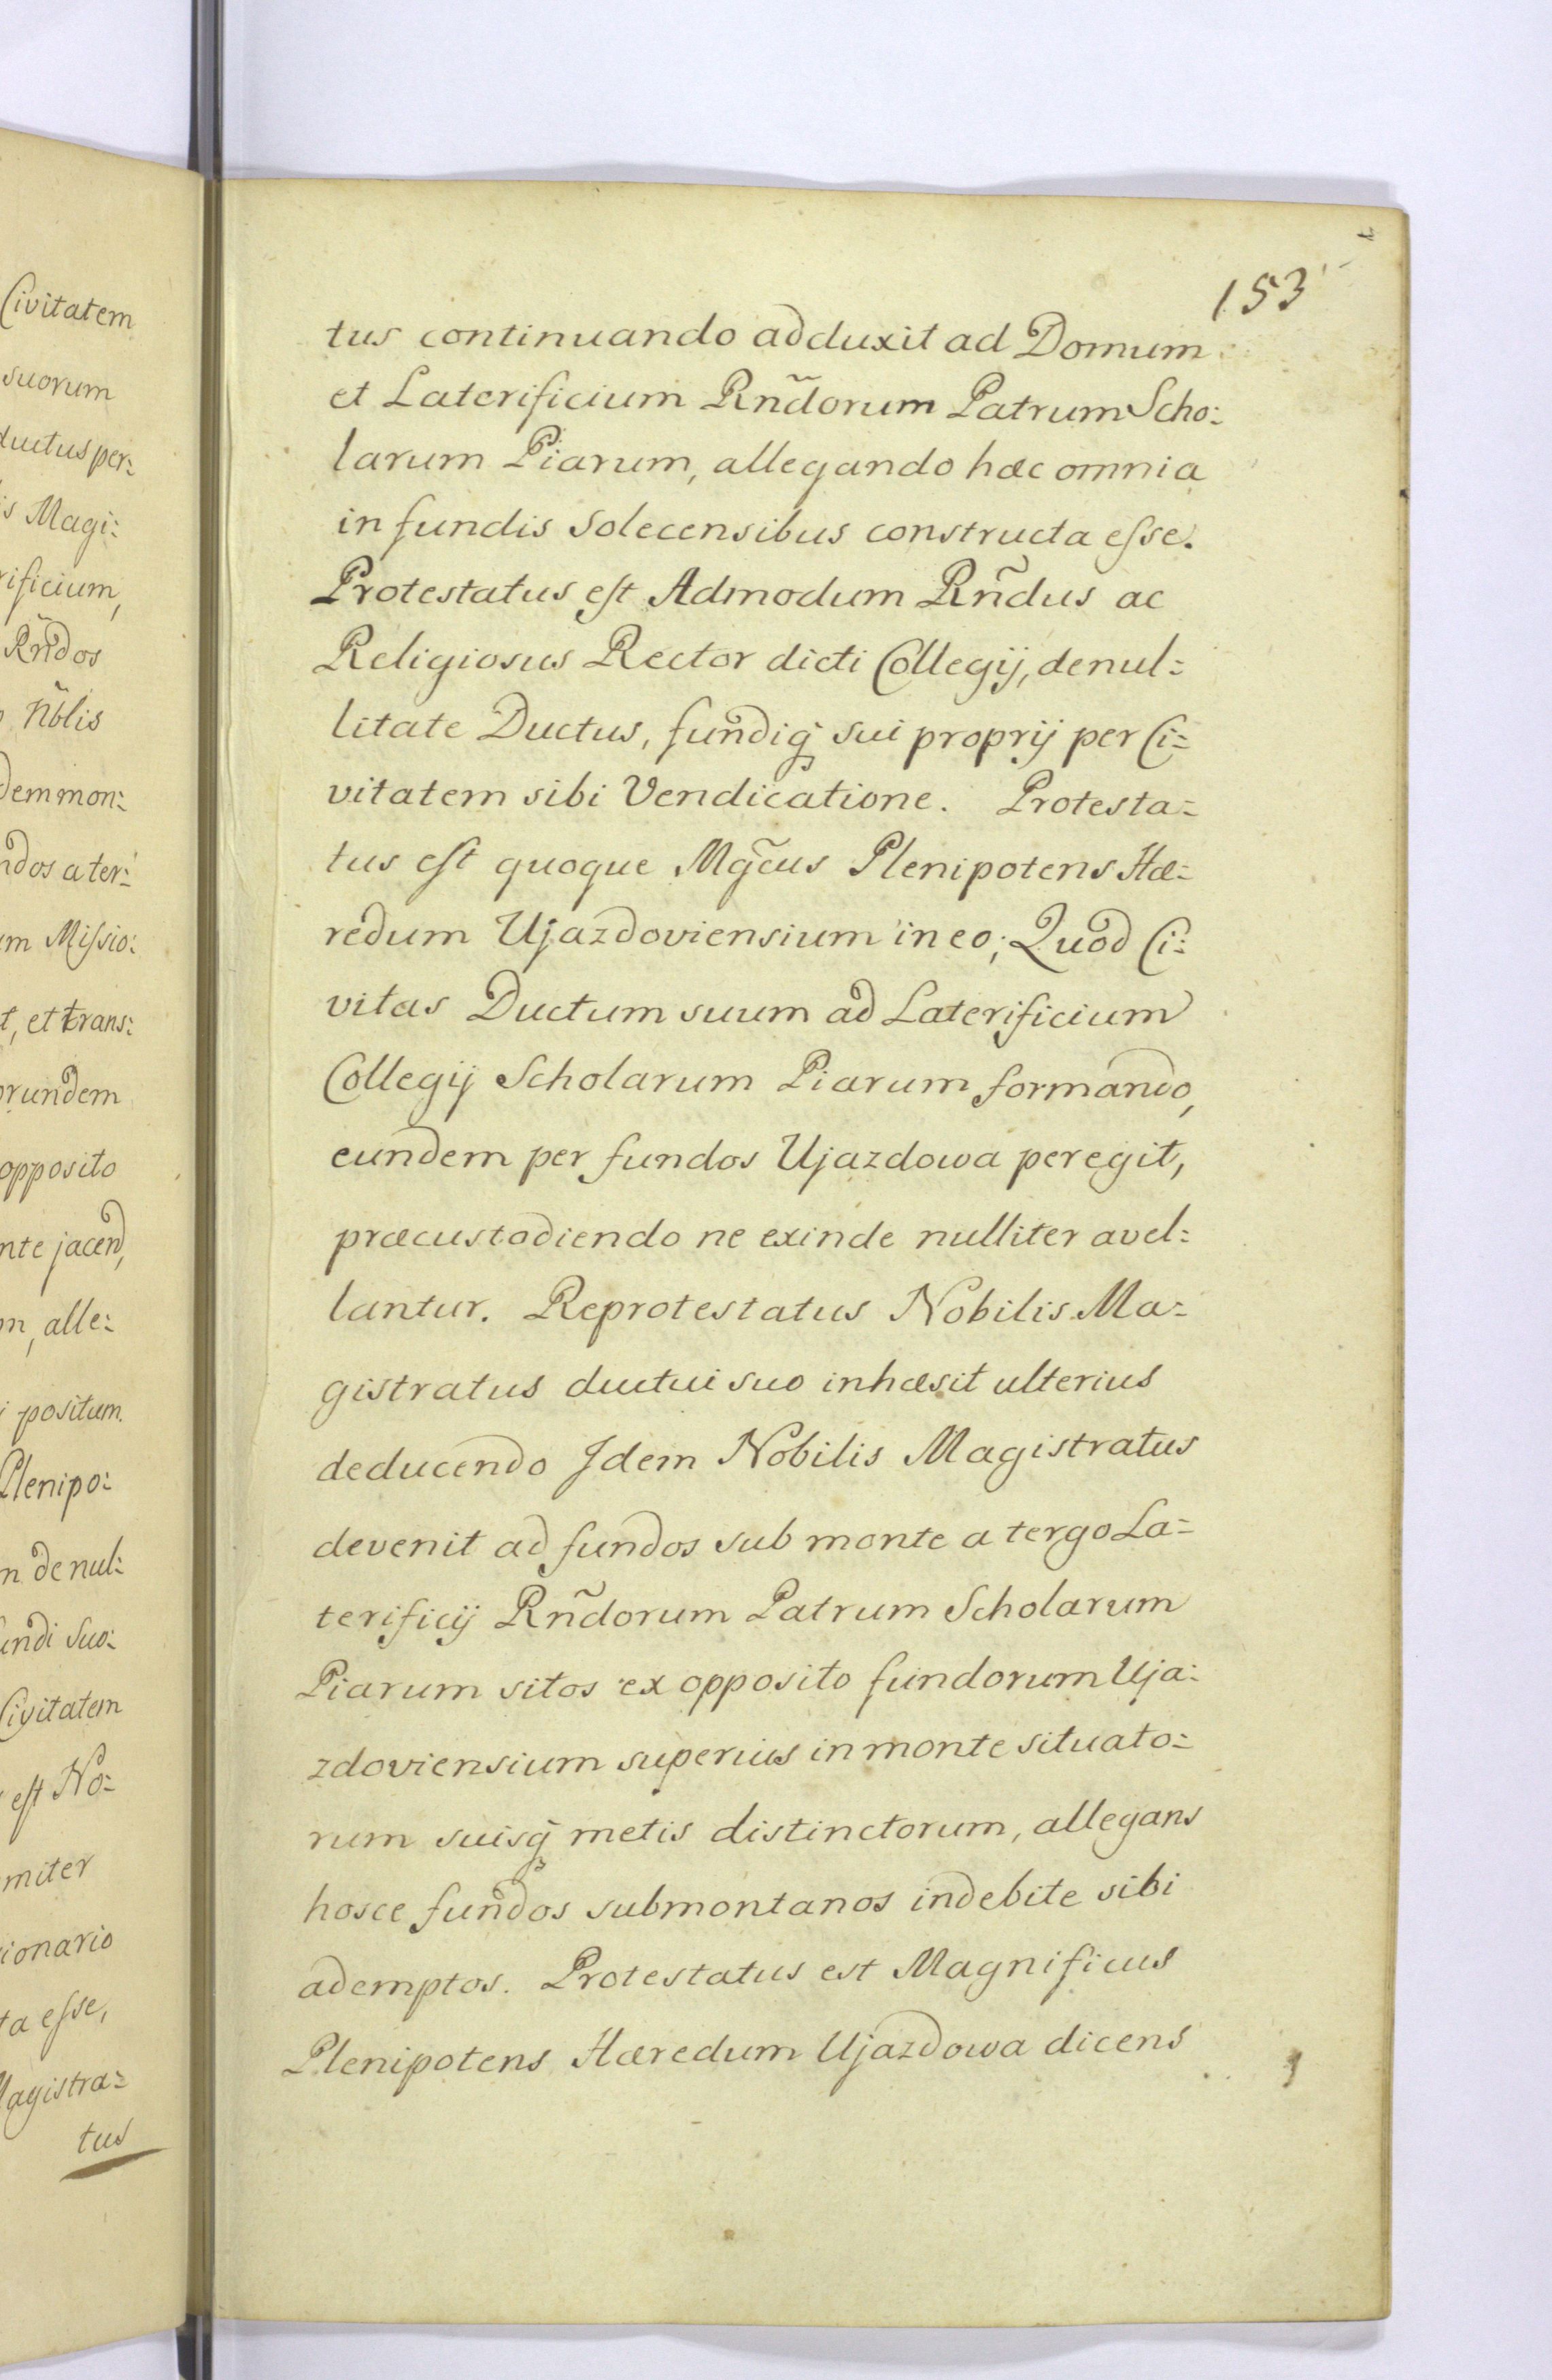 Civitatem
suorum
ductus per:
is Magi:
rificium,
Rñdos
ñblis
dem mon:
ndos a ter:
um Missio:
t, et trans:
orundem
opposito
nte jacend,
m, alle:
i positum.
Plenipo:
n de nul:
undi suo:
Civitatem
est No:
miter
ionario
ta esse,
Magistra=
tus
153
tus continuando adduxit ad Domum
et Laterificium Rñdorum Patrum Scho:
larum Piarum, allegando hæc omnia
in fundis Solecensibus constructa esse.
Protestatus est Admodum Rñdus ac
Religiosus Rector dicti Collegij, de nul=
litate Ductus, fundiq₃ sui proprij per Ci=
vitatem sibi Vendicatione. Protesta=
tus est quoque Mg̃cus Plenipotens Hæ=
redum Ujazdoviensium in eo; Quod Ci:
vitas Ductum suum ad Laterificium
Collegij Scholarum Piarum formando,
eundem per fundos Ujazdowa peregit,
præcustodiendo ne exinde nulliter avel:
lantur. Reprotestatus Nobilis Ma=
gistratus ductui suo inhæsit ulterius
deducendo Idem Nobilis Magistratus
devenit ad fundos sub monte a tergo La=
terificij Rñdorum Patrum Scholarum
Piarum sitos ex opposito fundorum Uja:
zdoviensium superius in monte situato=
rum suisq₃ metis distinctorum, allegans
hosce fundos submontanos indebite sibi
ademptos. Protestatus est Magnificus
Plenipotens Hæredum Ujazdowa dicens